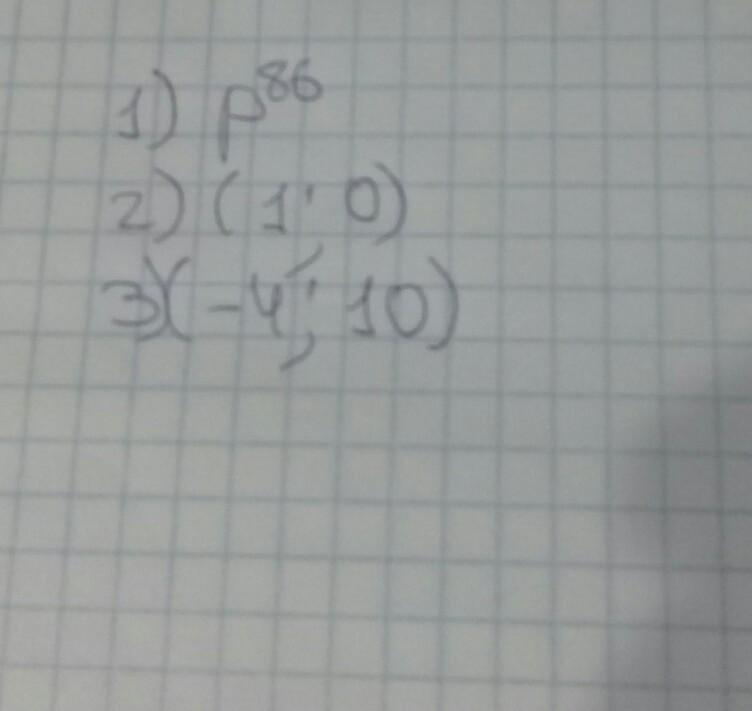 1) p^86
2) (1; 0)
3) (-4; 10)